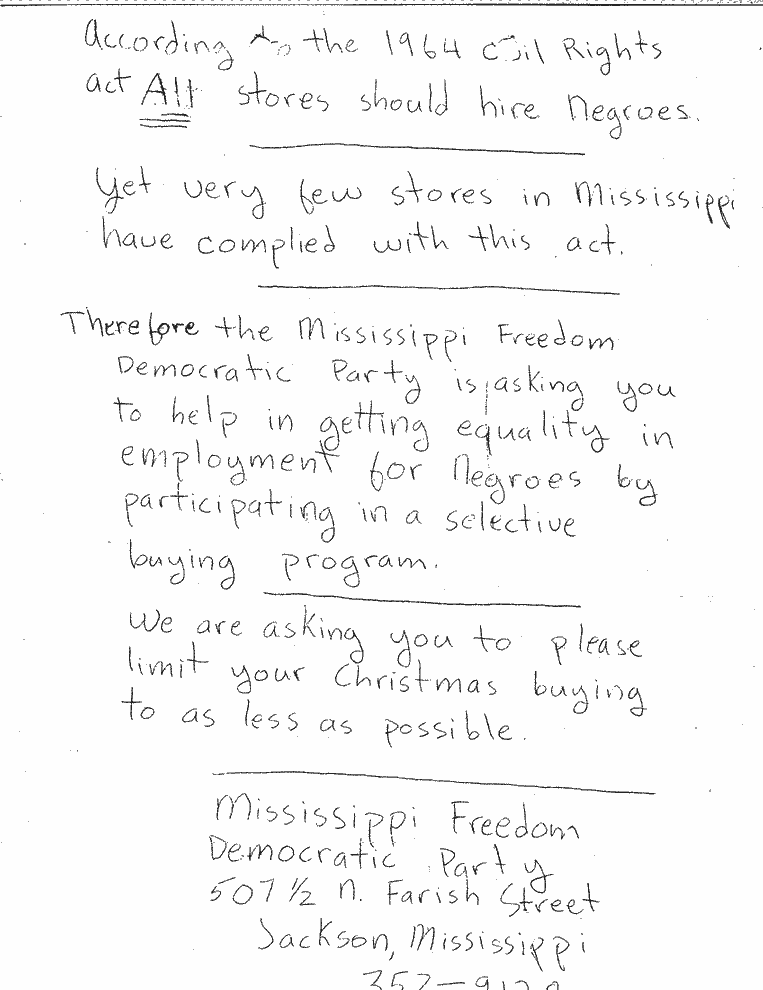 According to the 1964 Civil Rights
act All stores should hire Negroes.
Yet very few stores in Mississippi
have complied with this act.
Therefore the Mississippi Freedom
Democratic Party is asking you
to help in getting equality in
employment for Negroes by
participating in a selective
buying program.
We are asking you to please
limit your Christmas buying
to as less as possible.
Mississippi Freedom
Democratic Party
507 ½ N. Farish Street
Jackson, Mississippi